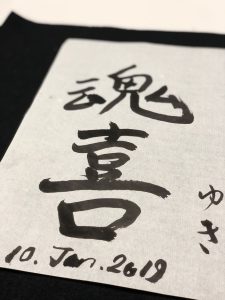 魂喜
ゆき
10. Jan. 2019